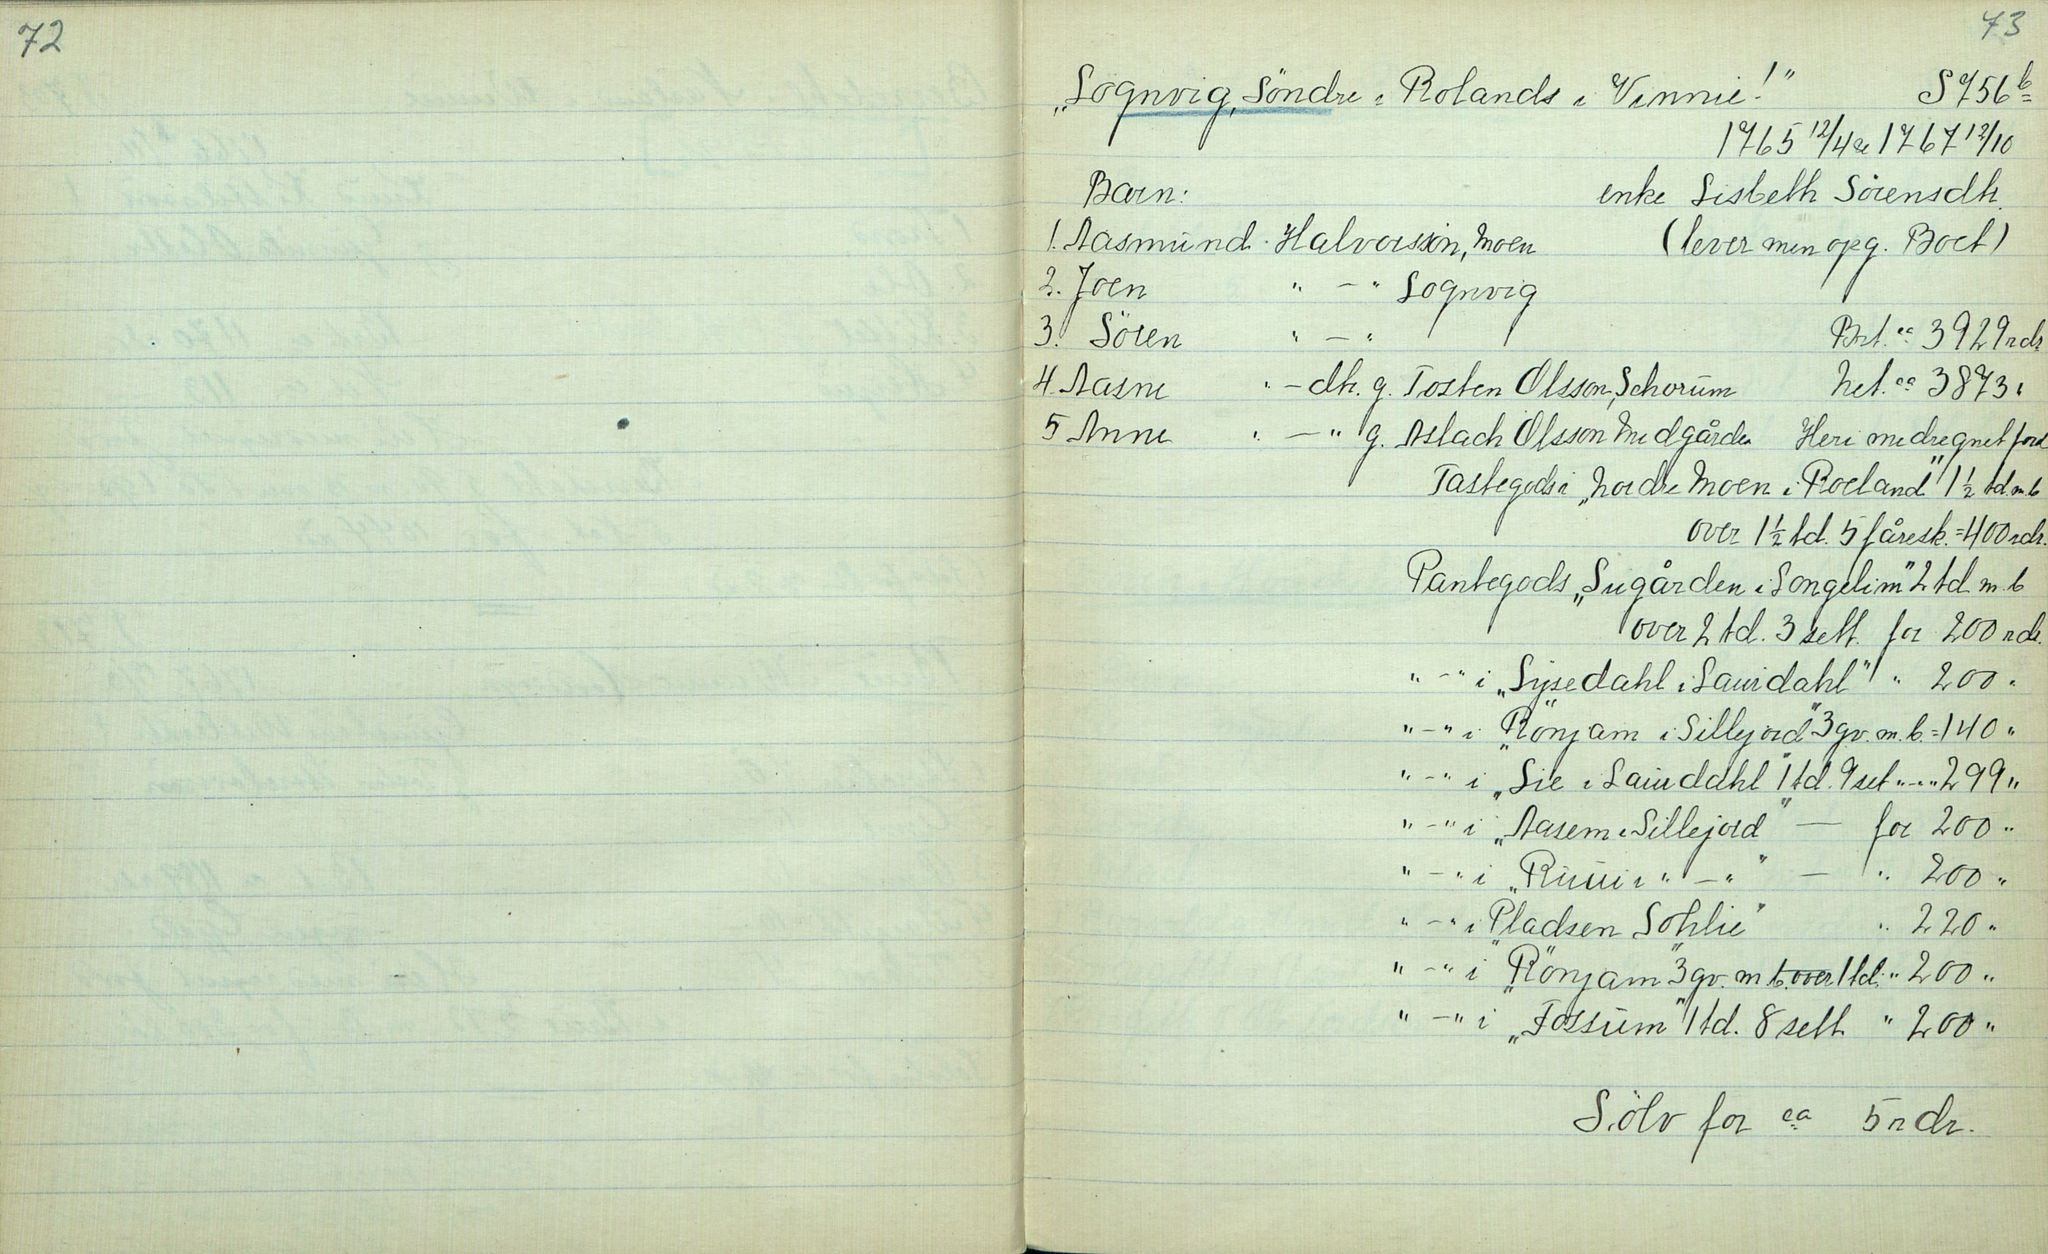 72
73
„Lognvig, Söndre i Rolands i Vinnie!" S 756 b
1765 12/4 & 1767 12/10
Barn: enke Lisbeth Sörensdtr.
1. Aasmund Halvorsson, Moen (lever men opg. Boet)
2. Joen " — " Lognvig
3. Sören " — " Brt. ca 3929 rdr
4. Aasne " — dtr. g. Tosten Olsson, Schorum Net. ca 3873 "
5 Anne " — " g. Aslach Olsson Midgården Heri medregnet jord
Tastegods i „Nordre Moen i Roeland" 1½ td. m. b
over 1½ td. 5 fåresk. = 400 rdr.
Pantegods „Sugården i Songelim" 2 td m. b
over 2 td. 3 sett. for 200 rdr.
" — " i „Lysedahl i Laurdahl" " 200 "
" — " i „Rönjam i Sillejord" 3 gv. m. b. = 140 "
" — " i „Lie i Laurdahl" 1 td. 9 set " — " 299 "
" — " i „Aasem i Sillejord" — for 200 "
" — " i „Ruui i " — " " — " 200 "
" — " i „Pladsen Sohlie" " 220 "
" — " i „Rönjam" 3 gv. m b. over 1 td. " 200 "
" — " i „Fossum" 1 td. 8 sett. " 200 "
Sölv for ca 5 rdr.